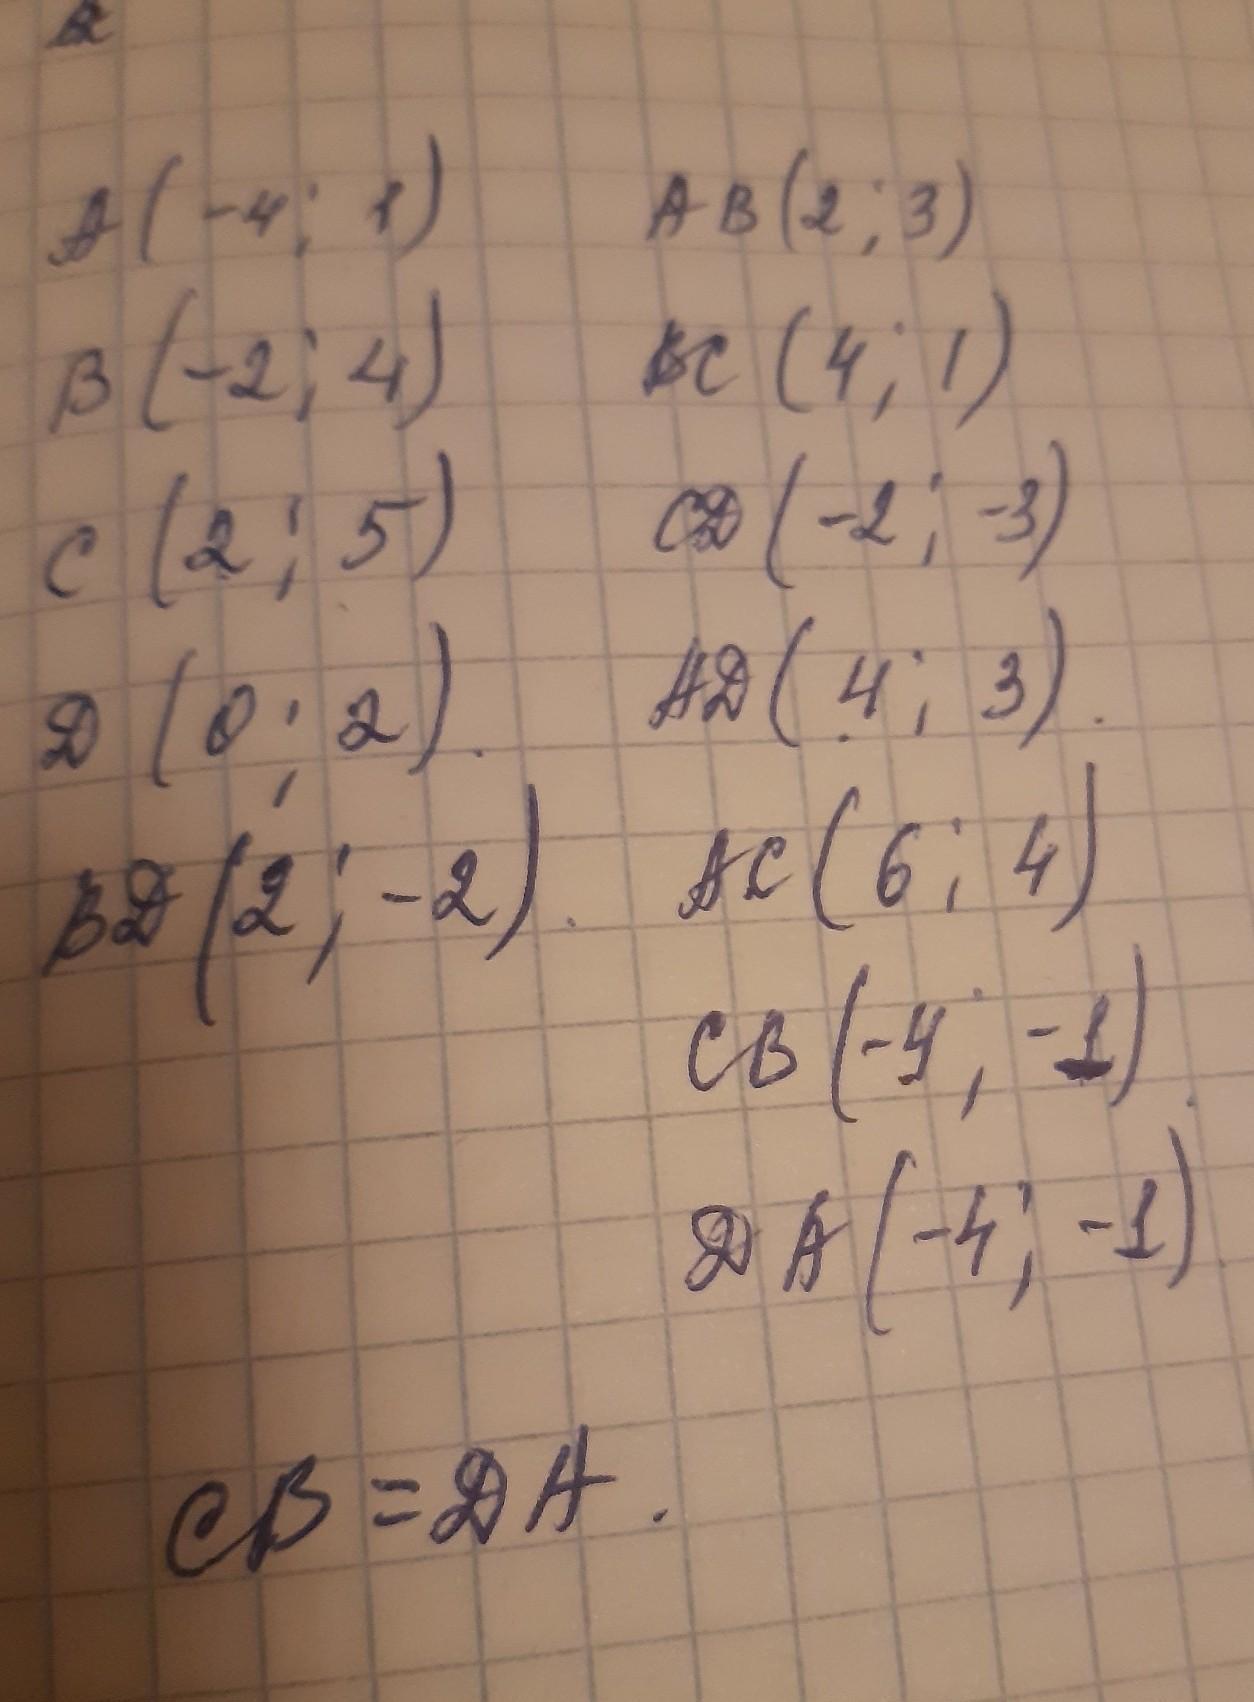 A(-4; 1)
B(-2; 4)
C(2; 5)
D(0; 2).
BD(2; -2).
AB(2; 3)
BC(4; 1)
CD(-2; -3)
AD(4; 3).
AC(6; 4)
CB(-4; -1).
DA(-4; -1)
CB = DA.